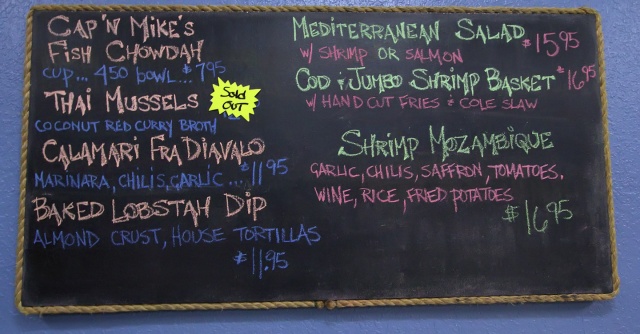 CAP'N MIKE'S
FISH CHOWDAH
CUP... 450 BOWL...$795
THAI MUSSELS
Sold OUT
COCONUT RED CURRY BROTH
CALAMARI FRA DIAVALO
MARINARA, CHILIS, GARLIC ... $11.95
BAKED LOBSTAH DIP
ALMOND CRUST, HOUSE TORTILLAS
$11.95
MEDITERRANEAN SALAD $1595
W/ SHRIMP OR SALMON
COD & JUMBO SHRIMP BASKET $1695
W/ HAND CUT FRIES & COLE SLAW
SHRIMP MOZAMBIQUE
GARLIC, CHILIS, SAFFRON, TOMATOES,
WINE, RICE, FRIED POTATOES
$1695